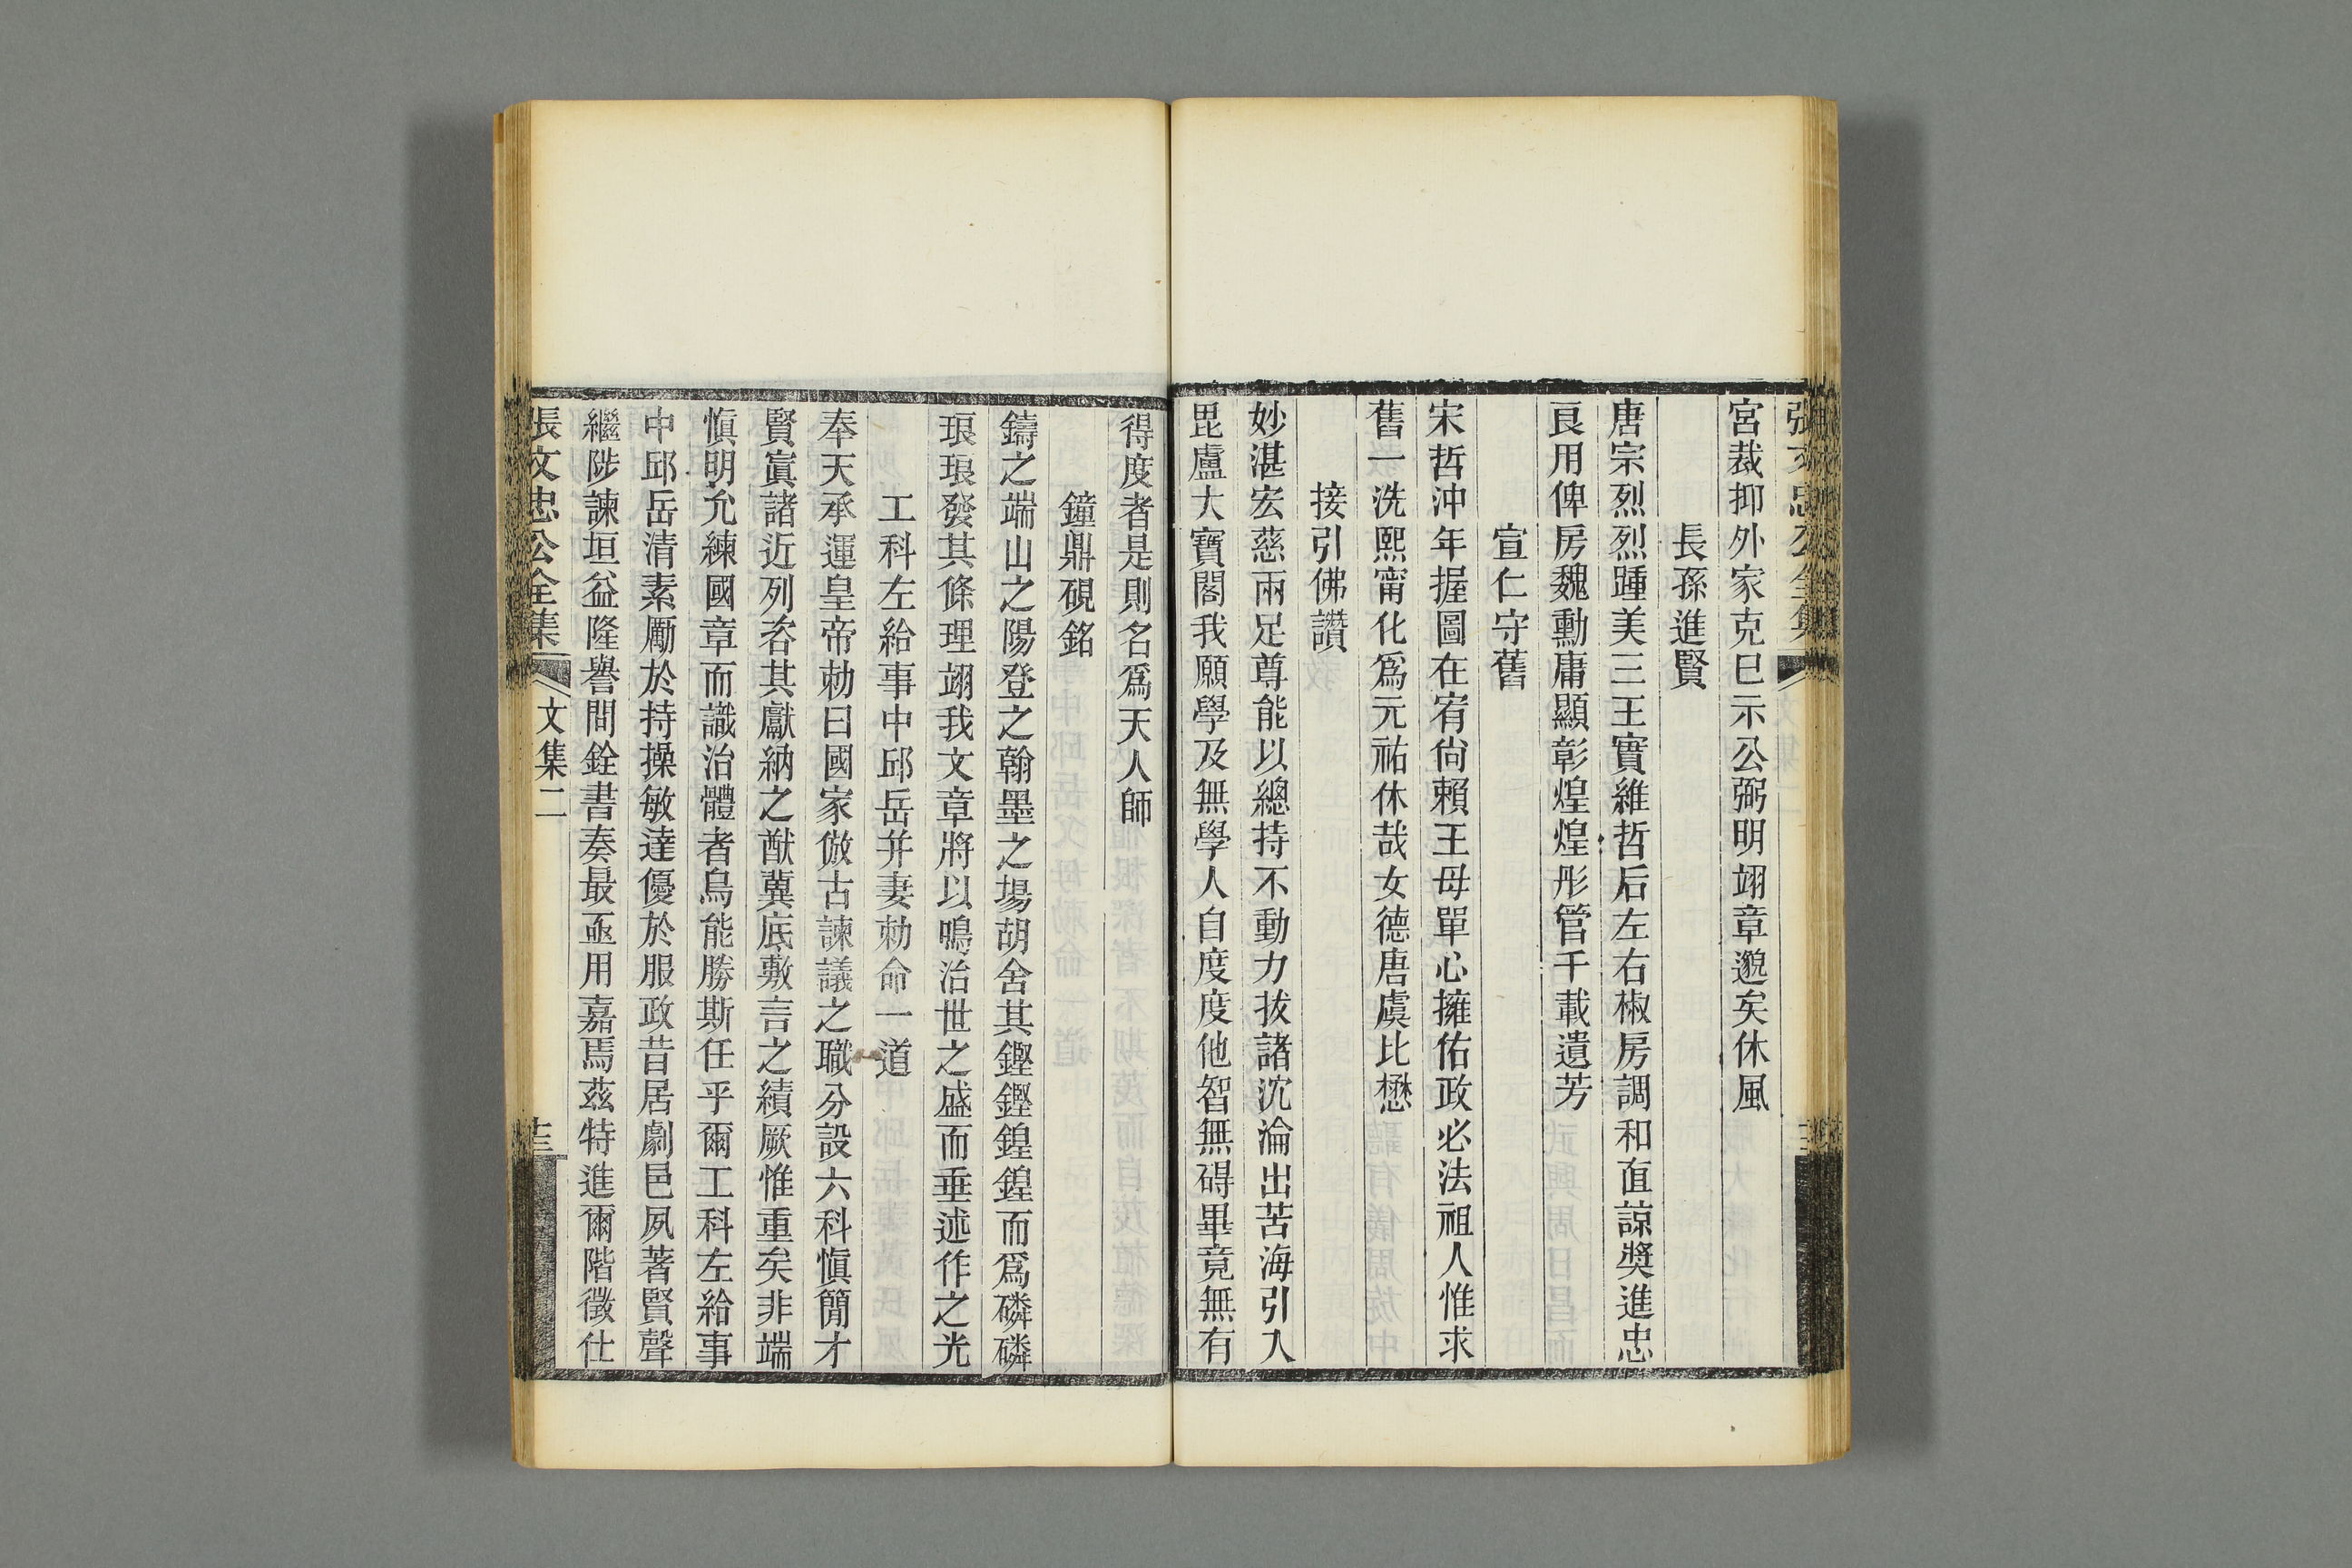 張文忠公全集
宮裁抑外家克巳示公弼明翊章邈矣休風
長孫進賢
唐宗烈烈踵美三王實維哲后左右椒房調和直諒奬進忠
良用俾房魏勳庸顯彰煌煌彤管千載遺芳
宣仁守舊
宋哲沖年握圖在宥尙賴王母單心擁佑政必法祖人惟求
舊一洗熙甯化爲元祐休哉女德唐虞比懋
接引佛讚
妙湛宏慈兩足尊能以總持不動力拔諸沈淪出苦海引入
毘盧大寶閣我願學及無學人自度度他智無碍畢竟無有
得度者是則名爲天人師
鐘鼎硯銘
鑄之端山之陽登之翰墨之場胡舍其鏗鏗鍠鍠而爲磷磷
琅琅發其條理翊我文章將以鳴治世之盛而垂述作之光
工科左給事中邱岳并妻勅命一道
奉天承運皇帝勅曰國家倣古諫議之職分設六科愼簡才
賢寘諸近列咨其獻納之猷冀底敷言之績厥惟重矣非端
愼明允練國章而識治體者烏能勝斯任乎爾工科左給事
中邱岳清素厲於持操敏達優於服政昔居劇邑夙著賢聲
繼陟諫垣益隆譽問銓書奏最亟用嘉焉茲特進爾階徵仕
張文忠公全集
文集二